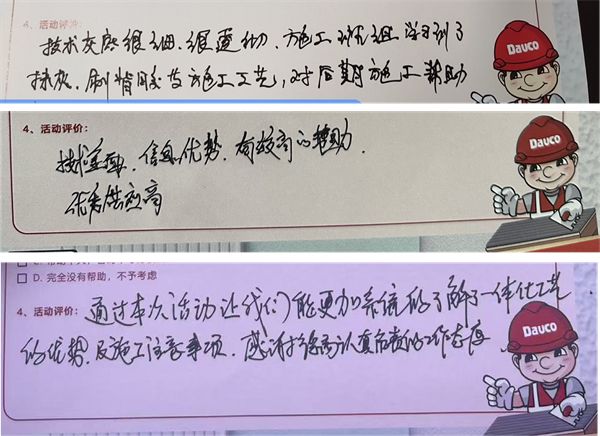 4、活动评价:
技术交底很细、很透彻、施工班组学习到了
挂板、刷背胶等施工工艺，对后期施工帮助
Dauco
4、活动评价:
技术全面、信息优势、有较高的帮助.
优秀供应商
Dauco
D. 完全没有帮助，不予考虑
4、活动评价:
通过本次活动让我们能更加系统的了解了一体化工艺
的优势、及施工注意事项、感谢德高认真负责的工作态度
Dauco